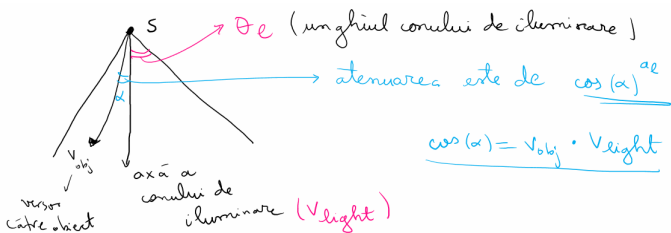 S
θe (unghiul conului de iluminare)
α
atenuarea este de cos(α)^ae
cos(α) = Vobj · Vlight
Vobj
versor
către obiect
axă a
conului de
iluminare (Vlight)